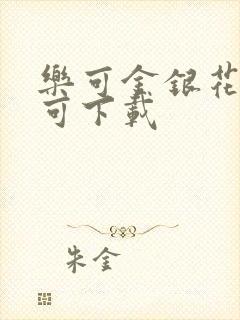 樂可金銀花
可下載
朱金